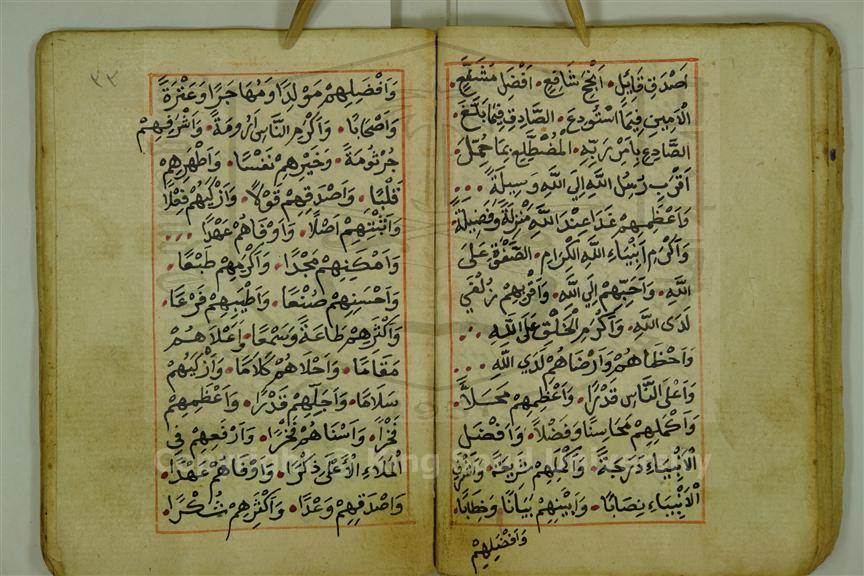 أَصْدَقِ قَائِلٍ أَنْجَحِ شَافِعٍ أَفْضَلِ مُشَفَّعٍ
الْأَمِينِ فِيمَا اسْتُودِعَ الصَّادِقِ فِيمَا بَلَّغَ
الصَّادِعِ بِأَمْرِ رَبِّهِ الْمُضْطَلِعِ بِمَا حُمِّلَ
أَقْرَبِ رُسُلِ اللَّهِ إِلَى اللَّهِ وَسِيلَةً
وَأَعْظَمِهِمْ غَدًا عِنْدَ اللَّهِ مَنْزِلَةً وَفَضِيلَةً
وَأَكْرَمِ أَنْبِيَاءِ اللَّهِ الْكِرَامِ الصَّفْوَةِ عَلَى
اللَّهِ وَأَحَبِّهِمْ إِلَى اللَّهِ وَأَقْرَبِهِمْ زُلْفَى
لَدَى اللَّهِ وَأَكْرَمِ الْخَلْقِ عَلَى اللَّهِ
وَأَحْظَاهُمْ وَأَرْضَاهُمْ لَدَى اللَّهِ
وَأَعْلَى النَّاسِ قَدْرًا وَأَعْظَمِهِمْ مَحَلًّا
وَأَكْمَلِهِمْ مَحَاسِنًا وَفَضْلًا وَأَفْضَلِ
الْأَنْبِيَاءِ دَرَجَةً وَأَكْمَلِهِمْ شَرِيعَةً وَأَشْرَفِ
الْأَنْبِيَاءِ نِصَابًا وَأَبْيَنِهِمْ بَيَانًا وَخِطَابًا
وَأَفْضَلِهِمْ
٢٣
وَأَفْضَلِهِمْ مَوْلِدًا وَمُهَاجَرًا وَعِتْرَةً
وَأَصْحَابًا وَأَكْرَمِ النَّاسِ أَرُومَةً وَأَشْرَفِهِمْ
جُرْثُومَةً وَخَيْرِهِمْ نَفْسًا وَأَطْهَرِهِمْ
قَلْبًا وَأَصْدَقِهِمْ قَوْلًا وَأَزْكَاهُمْ فِعْلًا
وَأَثْبَتِهِمْ أَصْلًا وَأَوْفَاهُمْ عَهْدًا
وَأَمْكَنِهِمْ مَجْدًا وَأَكْرَمِهِمْ طَبْعًا
وَأَحْسَنِهِمْ صُنْعًا وَأَطْيَبِهِمْ فَرْعًا
وَأَكْثَرِهِمْ طَاعَةً وَسَمْعًا وَأَعْلَاهُمْ
مَقَامًا وَأَحْلَاهُمْ كَلَامًا وَأَزْكَاهُمْ
سَلَامًا وَأَجَلِّهِمْ قَدْرًا وَأَعْظَمِهِمْ
فَخْرًا وَأَسْنَاهُمْ فَخْرًا وَأَرْفَعِهِمْ فِي
الْمَلَاءِ الْأَعْلَى ذِكْرًا وَأَوْفَاهُمْ عَهْدًا
وَأَصْدَقِهِمْ وَعْدًا وَأَكْثَرِهِمْ شُكْرًا